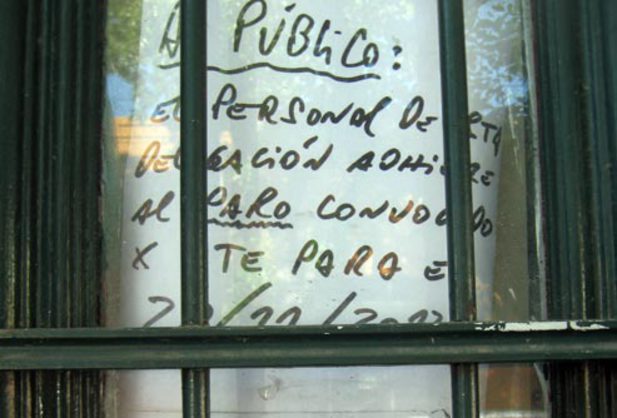 AL PÚBLICO:
EL PERSONAL DE ESTA
DELEGACIÓN ADHIERE
AL PARO CONVOCADO
X TE PARA E